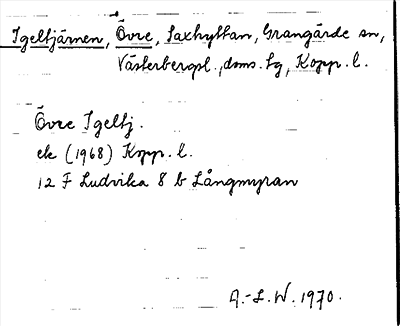 Igeltjärnen, Övre, Saxhyttan, Grangärde sn,
Västerbergsl. doms. tg, Kopp. l.
Övre Igeltj.
ek (1968) Kopp. l.
12 F Ludvika 8 b Långmyran
A.-L. W. 1970.